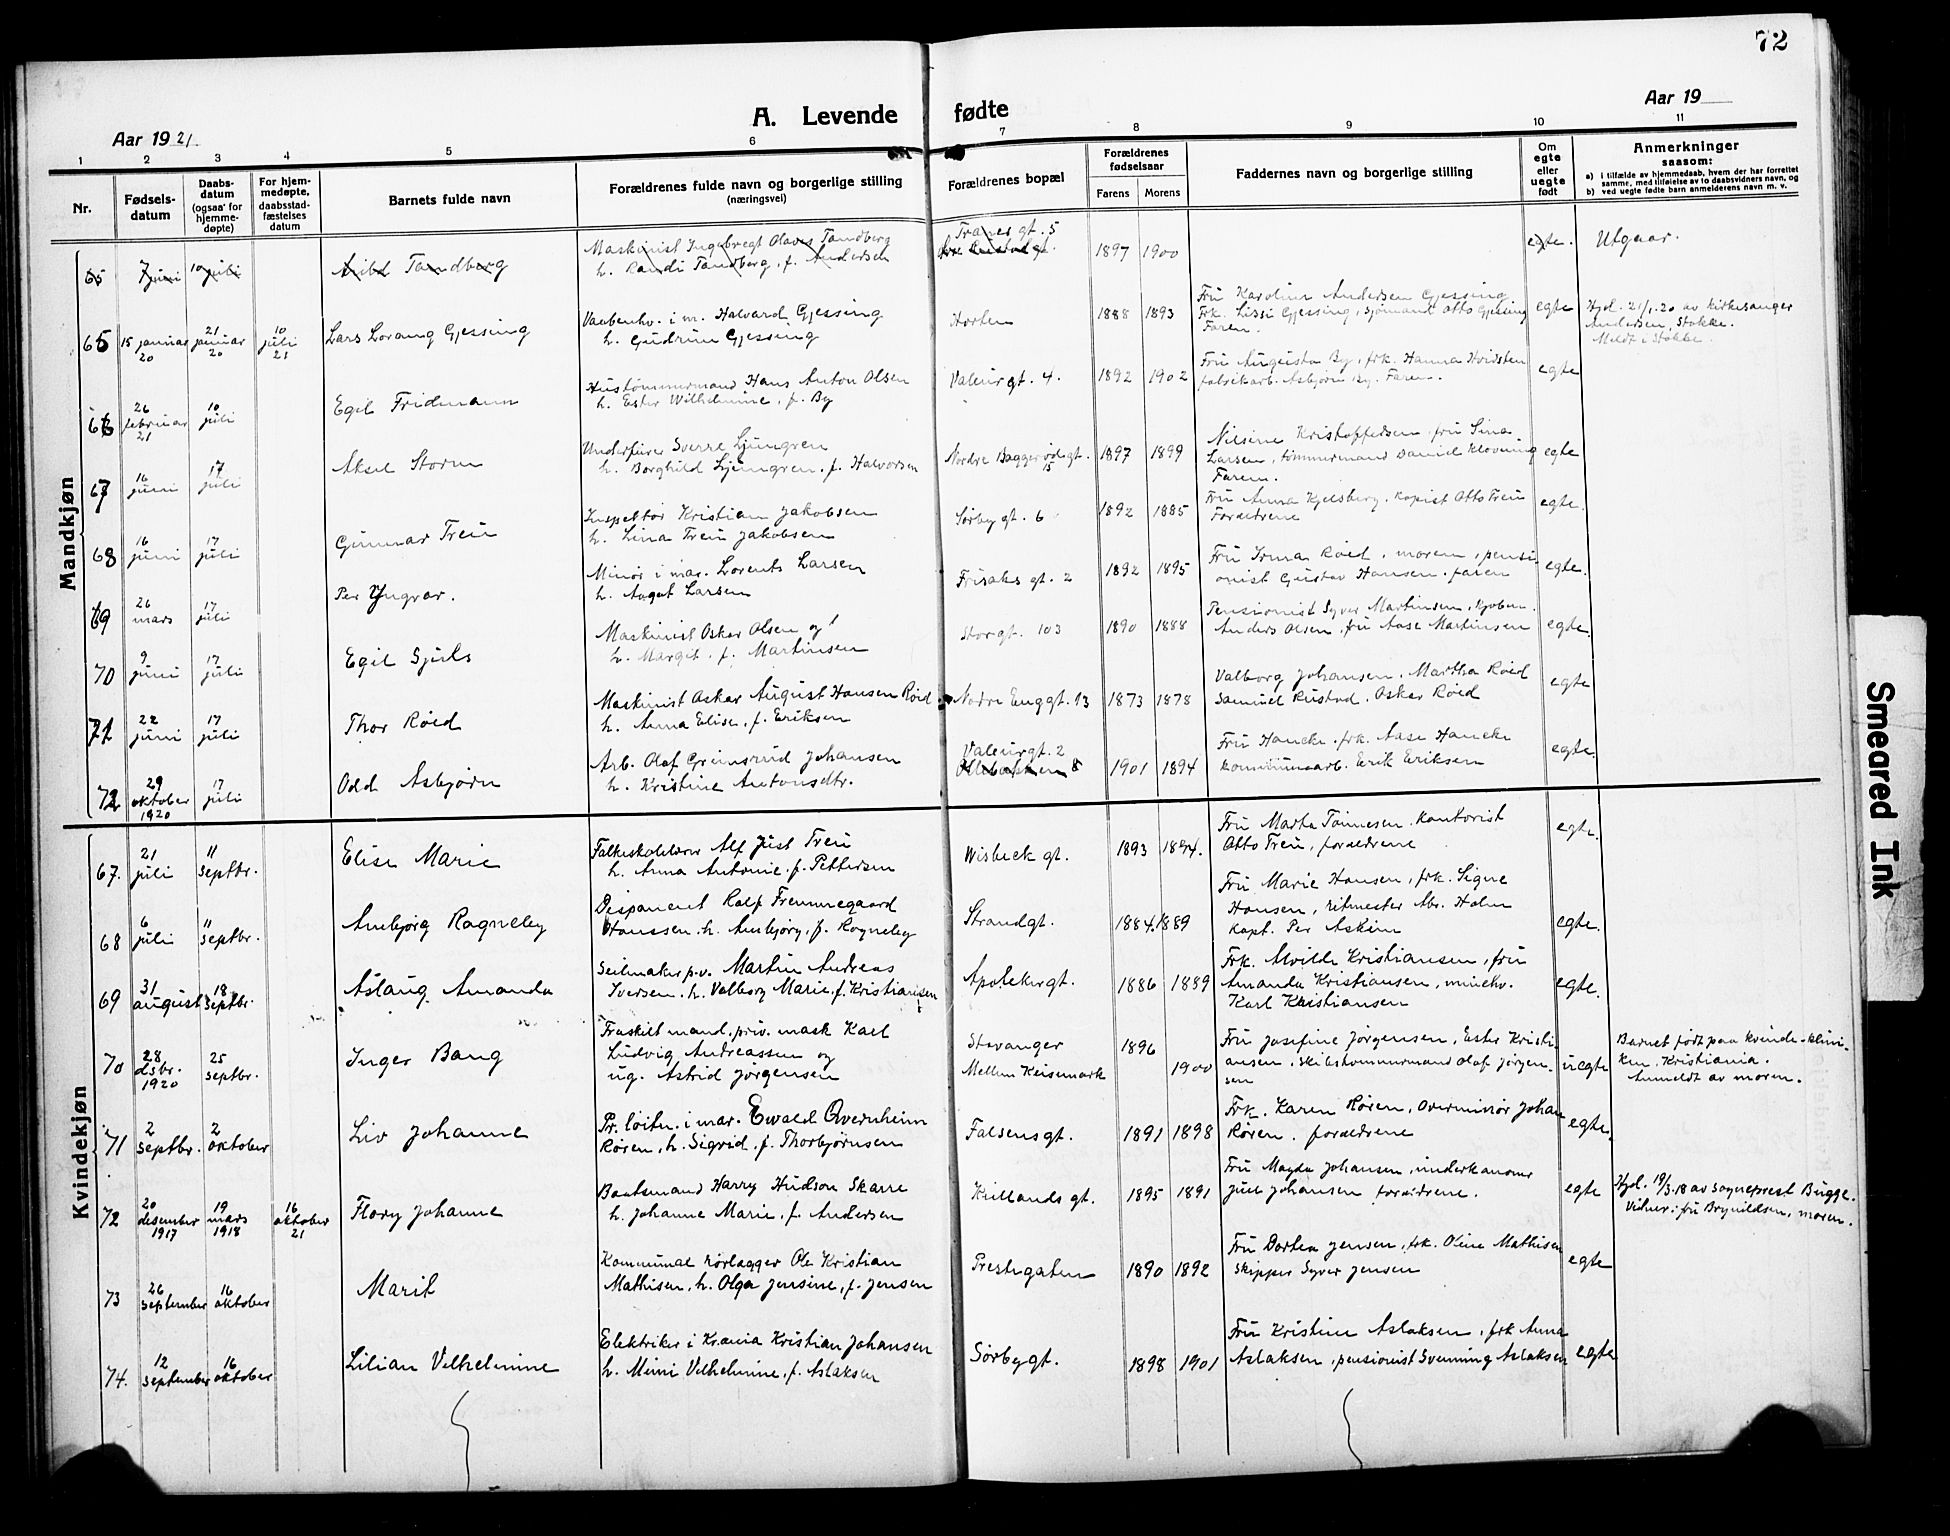 72
A. Levende fødte
Aar 1921
Aar 19
1 2 3 4 5 6 7 8 9 10 11
Nr.
Fødsels-
datum
Daabs-
datum
(ogsaa for
hjemme-
døpte)
For hjem-
medøpte,
daabsstad-
fæstelses
datum
Barnets fulde navn
Forældrenes fulde navn og borgerlige stilling
(næringsvei)
Forældrenes bopæl
Forældrenes
fødselsaar
Farens Morens
Faddernes navn og borgerlige stilling
Om
egte
eller
uegte
født
Anmerkninger
saasom:
a) i tilfælde av hjemmedaab, hvem der har forrettet
samme, med tilføielse av to daabsvidners navn, og
b) ved uegte fødte barn anmelderens navn m. v.
Mandkjøn
65 7 juni 10 juli Arild Tandberg
Maskinist Ingebregt Olaves Tandberg
h. Randi Tandberg, f. Andersen
Tranes gt. 5
1897 1900 egte. Utgaar.
65 15 januar 20 21 januar 20 10 juli 21 Lars Lorang Gjessing
Vaabenhv. i m. Halvard Gjessing
h. Gudrun Gjessing
Horten 1888 1893
Fru Karoline Andersen Gjessing
Frk. Lissi Gjessing, Sjømand Otto Gjessing
Faren.
egte
Hjd. 21/1.20 av kirkesanger
Andersen, Stokke.
Meldt i Stokke.
66 26 februar 21 10 juli Egil Fridmann
Hustømmermand Hans Anton Olsen
h. Ester Wilhelmine, f. By
Valeur gt. 4. 1892 1902
Fru Augusta By, frk. Hanna Hvidsten
fabrikarb. Asbjørn By. Faren.
egte
67 16 juni 17 juli Aksel Storm
Underfurer Sverre Ljungren
h. Borghild Ljungren, f. Halvorsen
Nordre Baggerødgt. 15 1897 1899
Nilsine Kristoffersen, fru Sina
Larsen, tømmermand Daniel Kloving
Faren.
egte
68 16 juni 17 juli Gunnar Treu
Inspektør Kristian Jakobsen
h. Lina Treu Jakobsen
Sørbygt. 6 1892 1885
Fru Anna Kjelsberg, kopist Otto Treu
Forældrene
egte.
69 26 mars 17 juli Per Yngvar.
Minør i mar. Lorents Larsen
h. Aagot Larsen
Frisaks gt. 2 1892 1895
Fru Irma Røed, moren, pensi-
onist Gustav Hansen. faren
egte.
70 9 juni 17 juli Egil Sjuls
Maskinist Oskar Olsen og
h. Margit, f. Martinsen
Storgt. 103 1890 1888
Pensionist Syver Martinsen, kjøbm.
Anders Olsen, fru Aase Martinsen
egte.
71 22 juni 17 juli Thor Røed
Maskinist Oskar August Hansen Røed
h. Anna Elise, f. Eriksen
Nordre Enggt. 13 1873 1878
Valborg Johansen, Martha Røed
Samuel Rustad, Oskar Røed
egte
72 29 oktober 1920 17 juli Odd Asbjørn
Arb. Olaf Grimsrud Johansen
h. Kristine Antonsdtr.
Valeurgt. 2
1901 1894
Fru Hancke, frk. Aase Hancke
kommunearb. Erik Eriksen
egte.
Kvindekjøn
67. 21 juli 11 septbr. Elise Marie
Folkeskolelærer Alf Just Treu
h. Anna Antonie, f. Pettersen
Wisbeck gt. 1893 1894.
Fru Marta Tønnesen, kontorist
Otto Treu, forældrene
egte.
68 6 juli 11 septbr. Anbjørg Ragneley
Disponent Ralf Fremmegaard
Hanssen, h. Anbjørg, f. Rogneley
Strandgt. 1884. 1889
Fru Marie Hansen, frk. Signe
Hansen, ritmester Abr. Holm
kapt. Per Askim
egte.
69 31 august 18 septbr. Aslaug Amanda
Seilmaker p.v. Martin Andreas
Iversen. h. Valborg Marie, f. Kristiansen
Apotekergt. 1886 1889
Frk. Alvilde Kristiansen, fru
Amanda Kristiansen, minehv.
Karl Kristiansen
egte.
70 28 dsbr. 1920 25 septbr. Inger Bang
Fraskilt mand, priv. mask Karl
Ludvig Andreassen og
ug. Astrid Jørgensen
Stavanger 1896
Mellem Keisemark 1900
Fru Josefine Jørgensen, Ester Kristi-
ansen, Skibstømmermand Olaf Jørgen-
sen
uegte
Barnet født paa kvinde-klini-
ken, Kristiania.
Anmeldt av moren.
71 2 septbr. 2 oktober Liv Johanne
Pr. løitn. i mar. Ewald Qvernheim
Røren, h. Sigrid, f. Thorbjørnsen
Falsensgt. 1891 1898
Frk. Karen Røren, Overminør Johan
Røren, forældrene
egte.
72 20 desember 1917 19 mars 1918 16 oktober 21 Flory Johanne
Baatsmand Harry Hudson Skarre
h. Johanne Marie, f. Andersen
Kiellands gt. 1895 1891
Fru Magda Johansen, underkanoner
Juel Johansen forældrene.
egte
Hjd. 19/3.18 av sogneprest Bugge.
Vidner: fru Brynildsen, moren.
73 26 september 16 oktober Marit
Kommunal rørlægger Ole Kristian
Mathisen, h. Olga Jensine, f. Jensen
Prestegaten 1890 1892
Fru Dortea Jensen, frk. Oline Mathisen
skipper Syver Jensen
egte
74. 12 september 16 oktober Lilian Vilhelmine
Elektriker i Krania Kristian Johansen
h. Mimi Vilhelmine, f. Aslaksen
Sørbygt. 1898 1901
Fru Kristine Aslaksen, frk Anna
Aslaksen, pensionist Svenning Aslaksen
egte
Smeared Ink